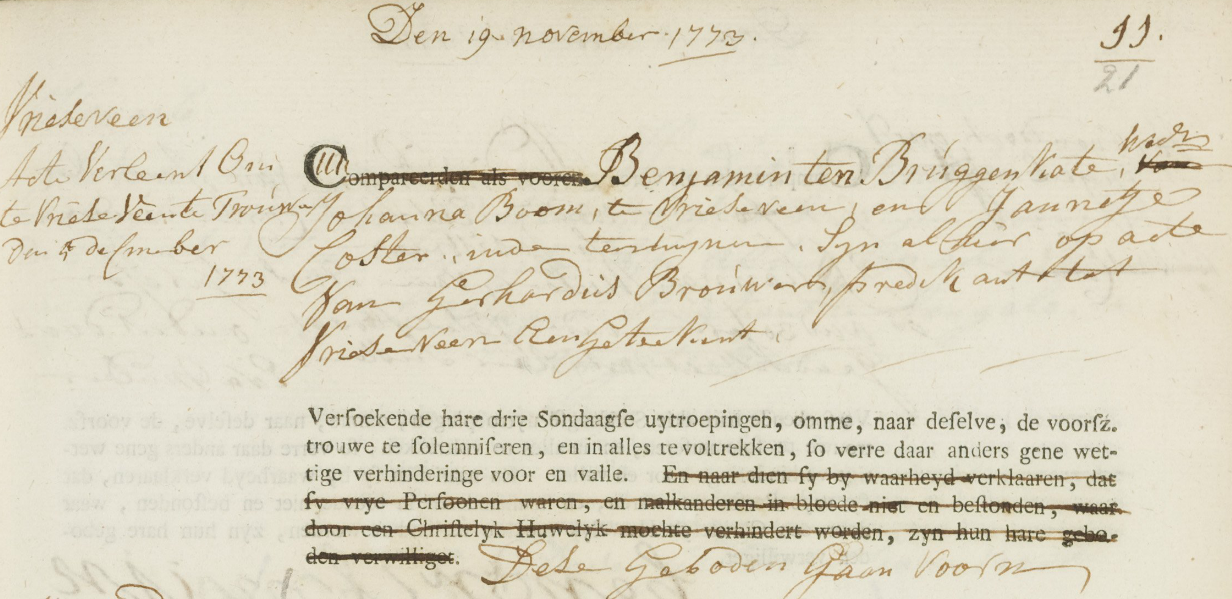 Den 19 november 1773.
11.
21
Vrieseveen
Acte Verleent Om
te Vriese Veen te Trouwen
Den 5 december
1773
Compareerden als vooren Benjamin ten Bruggenkate, wedr
Johanna Boom, te Vrieseveen, en Jannetje
Coster, in de Syn alhier op acte
Van Gerhardus Brouwer, predikant tot
Vrieseveen Aengeteekent.
Versoekende hare drie Sondaagse uytroepingen, omme, naar deselve, de voorsz.
trouwe te solemniseren, en in alles te voltrekken, so verre daar anders gene wet-
tige verhinderinge voor en valle. En naar dien sy by waarheyd verklaaren, dat
sy vrye Persoonen waren, en malkanderen in bloede niet en bestonden, waar
door een Christelyk Huwelyk mochte verhindert worden, zyn hun hare gebo-
den verwilliget. Dese Geboden Gaan Voort